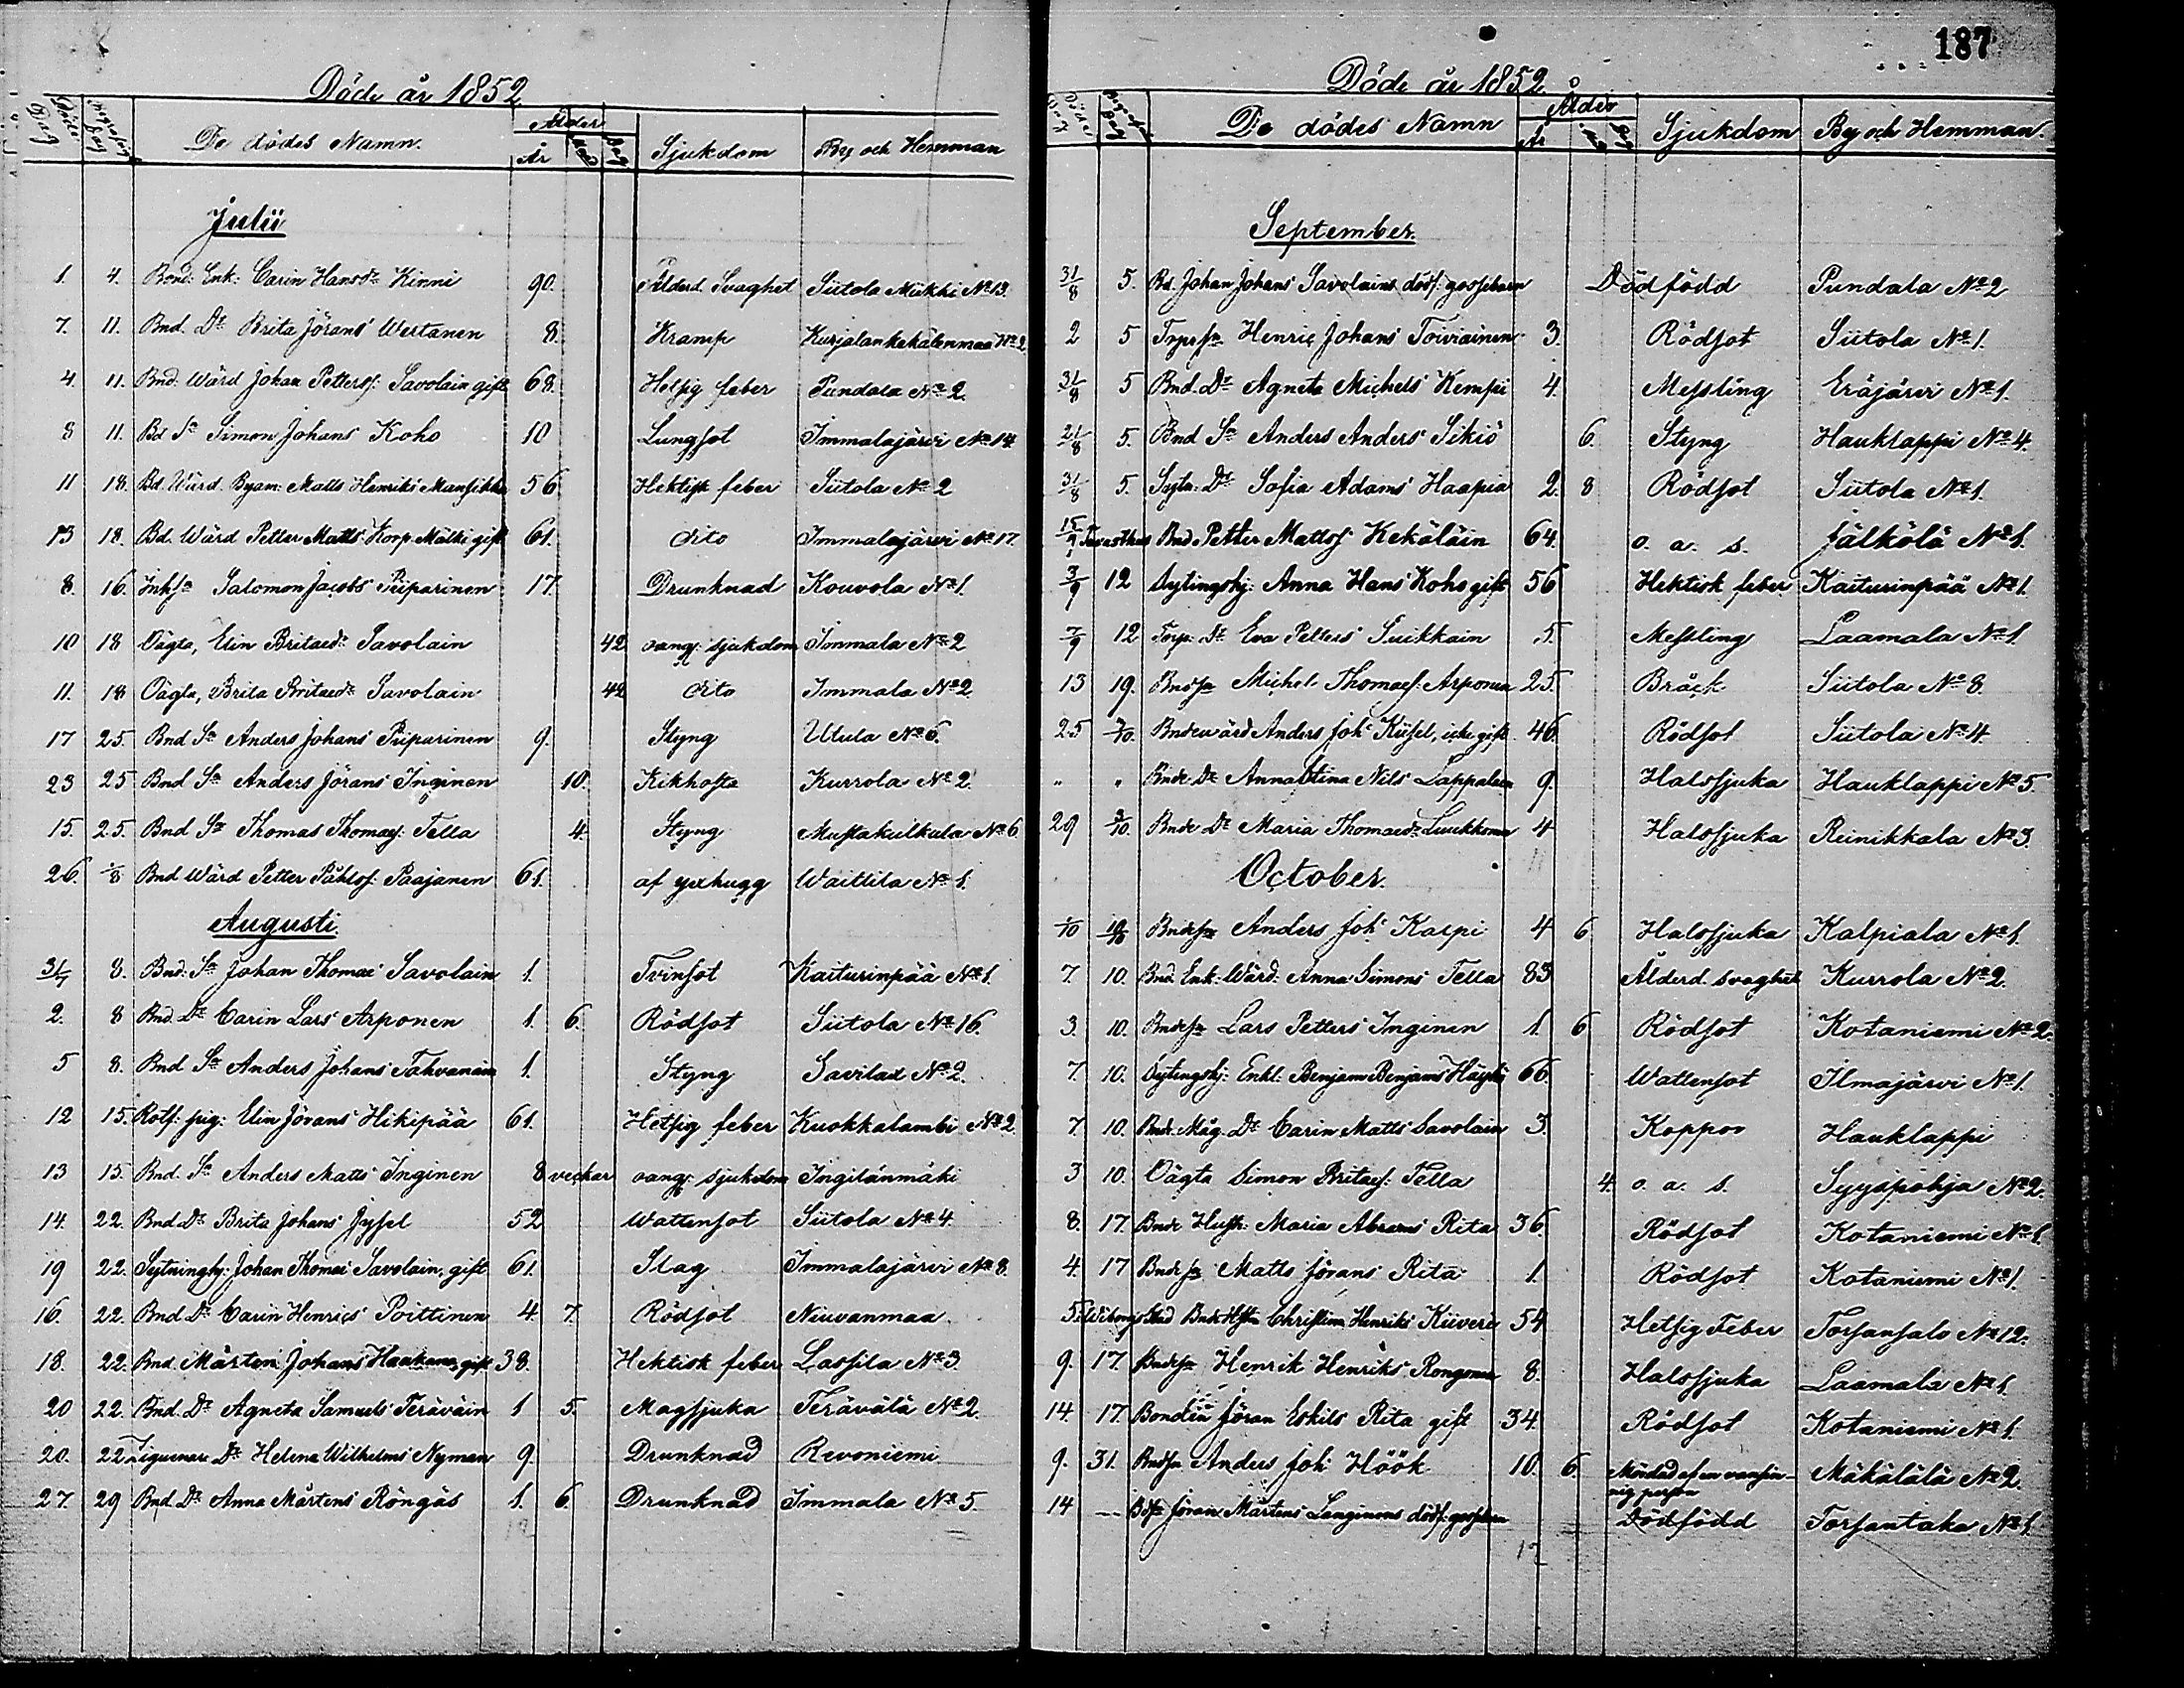 187
Döde år 1852
Döda Dag Begrafnings Dag De dödes Namn. Ålder År Mån Dag Sjukdom By och Hemman
Julii
1. 4. Bond. Enk: Carin Hansdr Kinni 90. Ålderd. Svaghet Siitola Mükki No 13.
7. 11. Bnd. Dr Brita Jörans Wertanen 8. Kramp Kurjalankekälenmaa No 2
4. 11. Bnd. Wärd Johan Petterss: Savolain gift 68. Hetsig feber Pundala No 2.
8 11. Bd Sn Simon Johans Koho 10 Lungsot Immalajärvi No 14
11 18. Bd. Wärd. Byam: Matts Henriks Mansikka 56 Hektisk feber Siitola No 2
13 18. Bd. Wärd Petter Matts Korp. Mälki gift 61. dito Immalajärvi No 17.
8. 16. Inhsn Salomon Jacobs Piiparinen 17. Drunknad Kouvola No 1.
10 18 Oägta, Elin Britaedr Savolain 42 oang: sjukdom Immala No 2
11. 18 Oägta, Brita Britaedr Savolain 42 dito Immala No 2.
17 25. Bnd Sn Anders Johans Piiparinen 9. Styng Utula No 6.
23 25 Bnd Sn Anders Jörans Inginen 10. Kikhosta Kurrola No 2.
15. 25. Bnd Sn Thomas Thomaes: Tella 4. Styng Mustakulkula No 6.
26. 1/8 Bnd Wärd Petter Påhlsf: Paajanen 61. af yxhugg Waittila No 1.
Augusti.
31/7 8. Bnd: Sn Johan Thomae Savolain 1. Tvinsot Kaiturinpää No 1.
2. 8 Bnd. Dr Carin Lars Arponen 1. 6. Rödsot Siitola No 16.
5 8. Bnd Sn Anders Johans Tahvanain 1. Styng Savilax No 2.
12 15. Rotf: pig: Elin Jörans Hikipää 61. Hetsig feber Kuokkalambi No 2.
13 15. Bnd. Sn Anders Matts Inginen 8 veckor oang: sjukdom Ingilänmäki
14. 22. Bnd Dr Brita Johans Jysel 52 Wattensot Siitola No 4.
19 22. Sytningshj: Johan Thomae Savolain, gift 61. Slag Immalajärvi No 8.
16. 22. Bnd Dr Carin Henrics Poittinen 4. 7. Rödsot Niuvanmaa
18. 22. Bnd. Mårten Johans Haakana, gift 38. Hektisk feber Lassila No 3.
20 22. Bnd. Dr Agneta Samuels Teräväin 1 5. Magsjuka Terävälä No 2.
20. 22 Ziguenare Dr Helena Wilhelms Nyman 9. Drunknad Revoniemi
27. 29 Bnd Dr Anna Mårtens Röngäs 1. 6. Drunknad Immala No 5.
12
Döde år 1852.
Döda Dag Begrafn Dag De dödes Namn Ålder År Mån Dag Sjukdom By och Hemman.
September.
31/8 5. Bd. Johan Johans Savolains dödf: gossebarn Dödfödd Pundala No 2
2 5 Torpsn Henric Johans Toiviainen 3. Rödsot Siitola No 1.
31/8 5 Bnd. Dr Agneta Michels Kemppi 4. Messling Eräjärvi No 1.
21/8 5. Bnd Sn Anders Anders Sikiö 6. Styng Hauklappi No 4.
31/8 5. Sytn: Dr Sofia Adams Haapia 2. 8 Rödsot Siitola No 1.
15/9 Tavasthus Bnd Petter Mattss Kekäläin 64. o. a. s. Jälkölä No 1.
3/9 12 Sytingshj: Anna Hans Koho gift 56 Hektisk feber Kaiturinpää No 1.
7/9 12 Torp: Dr Eva Petters Suikkain 5. Messling Laamala No 1.
13 19. Bndsn Michel Thomaes: Arponen 25. Bräck Siitola No 8.
25 3/10. Bndewärd Anders Johs Kiisel, icke gift 46. Rödsot Siitola No 4.
" " Bnde Dr Annastina Nils Lappalain 9. Halssjuka Hauklappi No 5.
29 3/10. Bnde Dr Maria Thomaedr Luukkonen 4 Halssjuka Reinikkala No 3.
October.
1/10 10/10 Bndesn Anders Johs Karpi 4 6 Halssjuka Kalpiala No 1.
7. 10. Bnd. Enk: Wärd. Anna Simons Tella 83 Ålderd. svaghet Kurrola No 2.
3. 10. Bndesn Lars Petters Inginen 1. 6 Rödsot Kotaniemi No 2.
7. 10. Sytingshj: Enkl. Benjam Benjams Häyhä 66. Wattensot Ilmajärvi No 1.
7. 10. Bnde Måg. Dr Carin Matts Savolain 3. Koppor Hauklappi
3 10. Oägta Simon Britaes: Tella 4. o. a. s. Syyspohja No 2.
8. 17. Bnde Hustr: Maria Abrams Rita 36. Rödsot Kotaniemi No 1.
4. 17 Bndesn Matts Jörans Rita 1. Rödsot Kotaniemi No 1.
5. Wiborgs Stad Bnde Hstr Christina Henriks Kiiveri 54 Hetsig Feber Torsansalo No 12.
9. 17. Bndesn Henrik Henriks Rongonen 8. Halssjuka Laamala No 1.
14. 17. Bonden Jöran Eskils Rita gift 34. Rödsot Kotaniemi No 1.
9. 31. Bndsn Anders Johs Höök 10. 6. Mördad af en vansin-
nig person Mäkälälä No 2.
14 — Bdsn Jöran Mårtens Langinens dödf: gossebarn Dödfödd Torsantaka No 1.